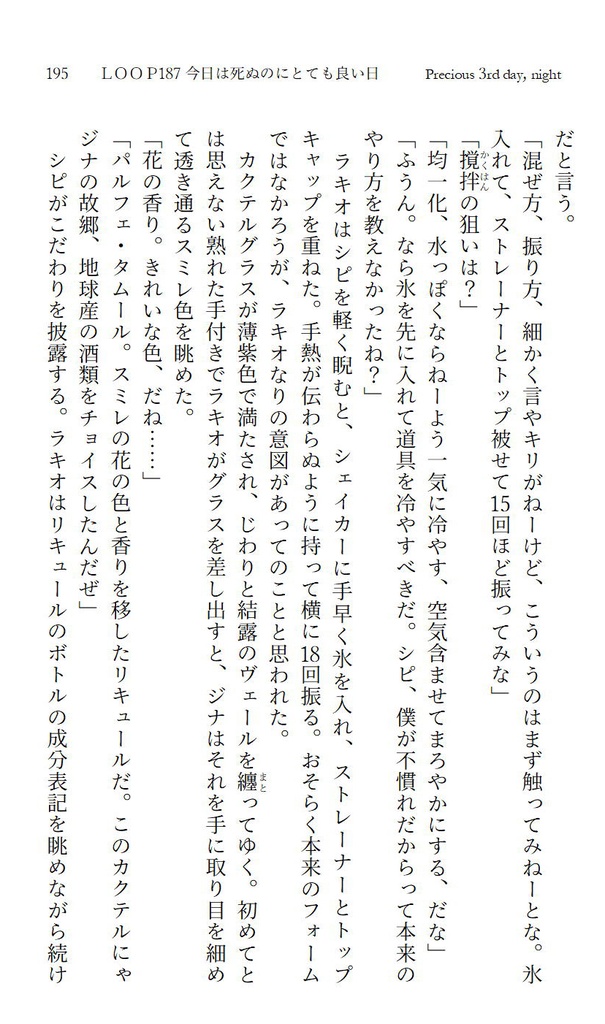 195 ＬＯＯＰ187 今日は死ぬのにとても良い日 Precious 3rd day, night
だと言う。
「混ぜ方、振り方、細かく言やキリがねーけど、こういうのはまず触ってみねーとな。氷
入れて、ストレーナーとトップ被せて15回ほど振ってみな」
「攪拌の狙いは？」
かくはん
「均一化、水っぽくならねーよう一気に冷やす、空気含ませてまろやかにする、だな」
「ふうん。なら氷を先に入れて道具を冷やすべきだ。シピ、僕が不慣れだからって本来の
やり方を教えなかったね？」
ラキオはシピを軽く睨むと、シェイカーに手早く氷を入れ、ストレーナーとトップ
キャップを重ねた。手熱が伝わらぬように持って横に18回振る。おそらく本来のフォーム
ではなかろうが、ラキオなりの意図があってのことと思われた。
カクテルグラスが薄紫色で満たされ、じわりと結露のヴェールを纏ってゆく。初めてと
まと
は思えない熟れた手付きでラキオがグラスを差し出すと、ジナはそれを手に取り目を細め
て透き通るスミレ色を眺めた。
「花の香り。きれいな色、だね……」
「パルフェ・タムール。スミレの花の色と香りを移したリキュールだ。このカクテルにゃ
ジナの故郷、地球産の酒類をチョイスしたんだぜ」
シピがこだわりを披露する。ラキオはリキュールのボトルの成分表記を眺めながら続け